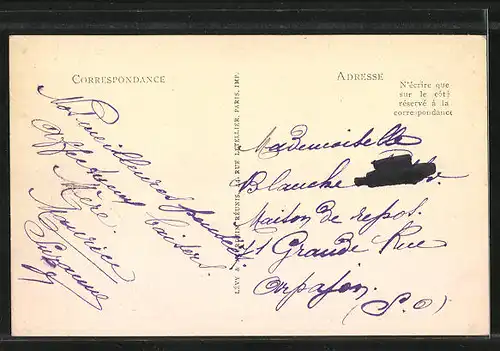 CORRESPONDANCE
Nos meilleures pensées
affectueux baisers
Mère
Maurice
Suzanne
LÉVY & NEURDEIN RÉUNIS, 44, RUE LETELLIER, PARIS, IMP.
ADRESSE
N'écrire que
sur le côté
réservé à la
correspondance
Mademoiselle
Blanche
Maison de repos.
11 Grande Rue
Arpajon.
(S.O)